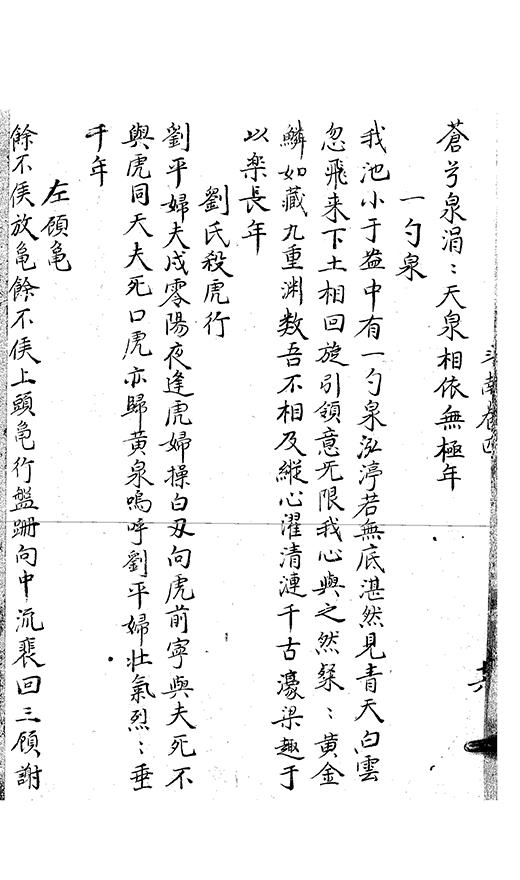 斗南卷四
蒼兮泉涓：天泉相依無極年
一勺泉
我池小于盎中有一勺泉泓渟若無底湛然見青天白雲
忽飛来下土相回旋引領意无限我心與之然粲：黄金
鱗如藏九重渊数吾不相及縱心濯清漣千古濠梁趣于
以楽長年
劉氏殺虎行
劉平婦夫戍零陽夜逢虎婦操白刃向虎前寧與夫死不
與虎同天夫死口虎亦歸黄泉嗚呼劉平婦壮氣烈：垂
千年
左顧亀
餘不侯放亀餘不侯上頭亀行盤跚向中流裴回三顧謝